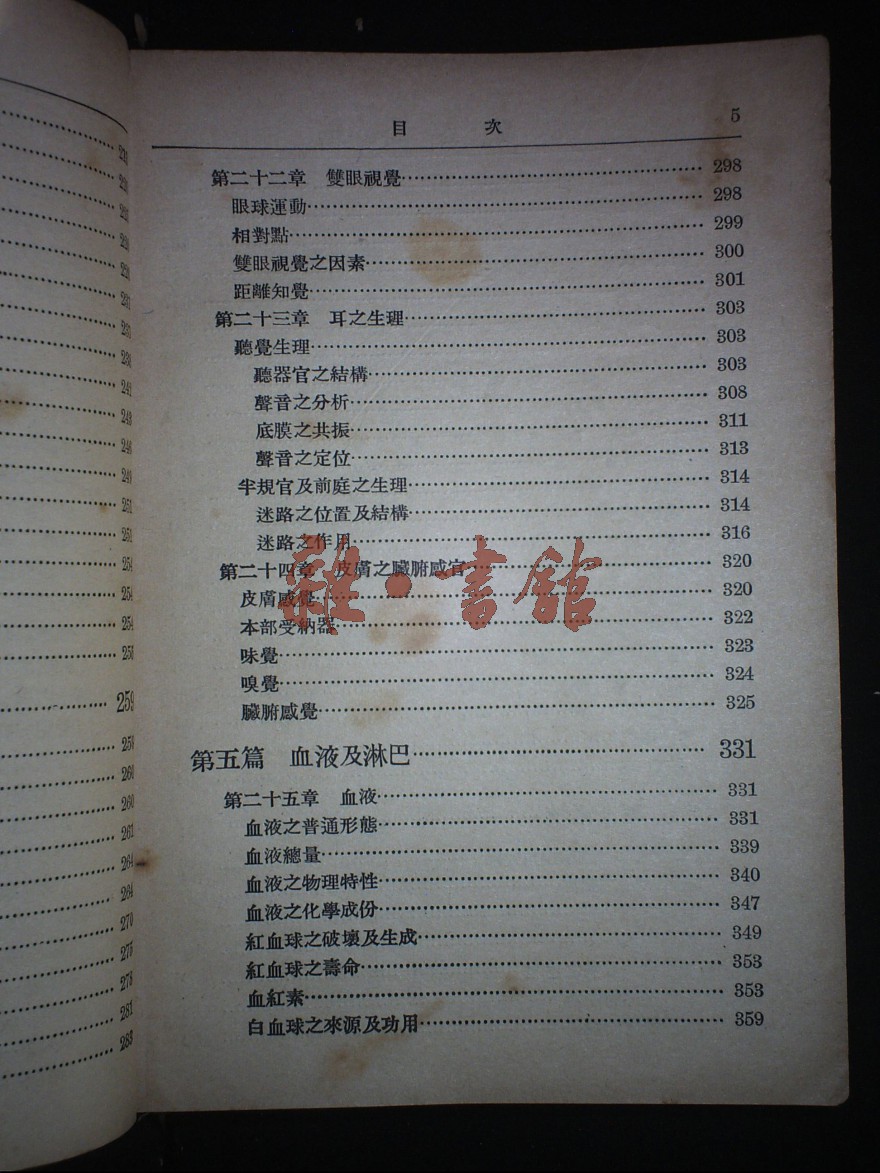 目 次 5
第二十二章 雙眼視覺 298
眼球運動 298
相對點 299
雙眼視覺之因素 300
距離知覺 301
第二十三章 耳之生理 303
聽覺生理 303
聽器官之結構 303
聲音之分析 308
底膜之共振 311
聲音之定位 313
半規官及前庭之生理 314
迷路之位置及結構 314
迷路之作用 316
第二十四章 皮膚之臟腑感官 320
皮膚感覺 320
本部受納器 322
味覺 323
嗅覺 324
臟腑感覺 325
第五篇 血液及淋巴 331
第二十五章 血液 331
血液之普通形態 331
血液總量 339
血液之物理特性 340
血液之化學成份 347
紅血球之破壞及生成 349
紅血球之壽命 353
血紅素 353
白血球之來源及功用 359
雜·書館
251
251
254
254
254
259
260
260
264
264
270
275
278
281
283